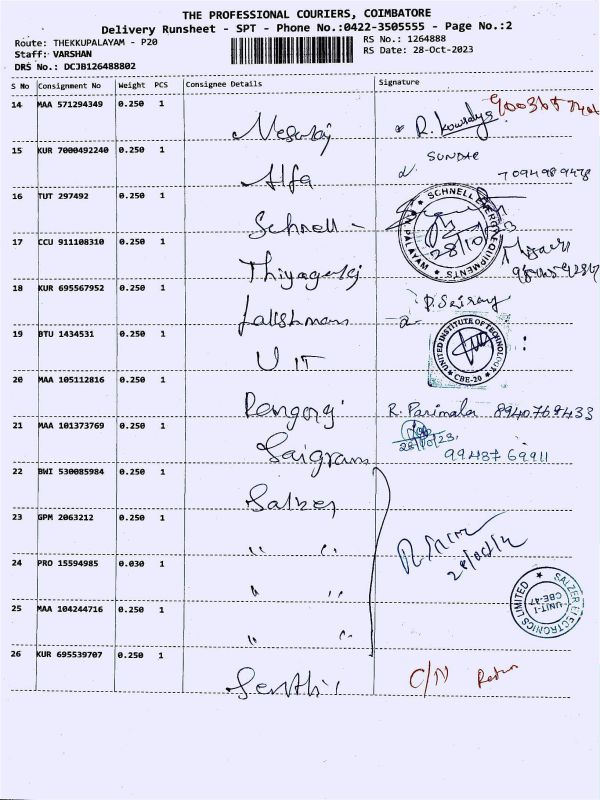 THE PROFESSIONAL COURIERS, COIMBATORE
Delivery Runsheet - SPT - Phone No.:0422-3505555 - Page No.:2
Route: THEKKUPALAYAM - P20
RS No.: 1264888
Staff: VARSHAN
RS Date: 28-Oct-2023
DRS No.: DCJB126488802
S No Consignment No Weight PCS Consignee Details Signature
14 MAA 571294349 0.250 1
R. Kowsalya
15 KUR 7000492240 0.250 1
Alfa SUNDAR 7094989478
16 TUT 297492 0.250 1
Schnell
28/10/23
17 CCU 911108310 0.250 1
Thiyagaraj
18 KUR 695567952 0.250 1
Lakshman
19 BTU 1434531 0.250 1
UIT UNITED INSTITUTE OF TECHNOLOGY CBE-20
20 MAA 105112816 0.250 1
R. Parimala 8940769433
21 MAA 101373769 0.250 1
Sairam 28/10/23 9943769911
22 BWI 530085984 0.250 1
Salzer
23 GPM 2063212 0.250 1
" "
24 PRO 15594985 0.030 1
" "
SALZER ELECTRONICS LIMITED UNIT-I CBE-47
25 MAA 104244716 0.250 1
" "
26 KUR 695539707 0.250 1
Senthil C/N Return